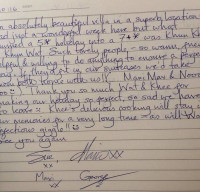 absolutely beautiful villa in a superb location
had just a wonderful week here but what
turned a 5* holiday into a 7** was Khun Khee
Khun Wat. Such lovely people - so warm, friendly
helpful & willing to do anything to ensure a perfect
stay. If they'd fit in our suitcases we'd take
Thank you so much Wat & Khee for
making our holiday so perfect, so sad we have
to leave. Khee's delicious cooking will stay in
our memories for a very long time - so will Wat's
infectious giggle!
see you again
Sue xx
xx
Max
xx
George